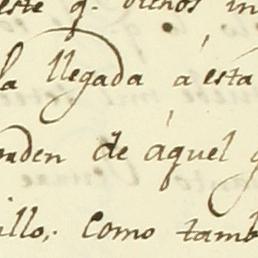 este q. dichos in
la llegada á ésta
nden de áquel
illo,. como tamb